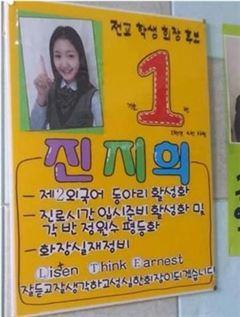 전교 학생 회장 후보
기호 1 번
진지희
- 제2외국어 동아리 활성화
- 진로시간 입시준비 활성화 및
각 반 정원수 평등화
- 화장실재정비
Listen Think Earnest
잘듣고잘생각하고성실한회장이되겠습니다